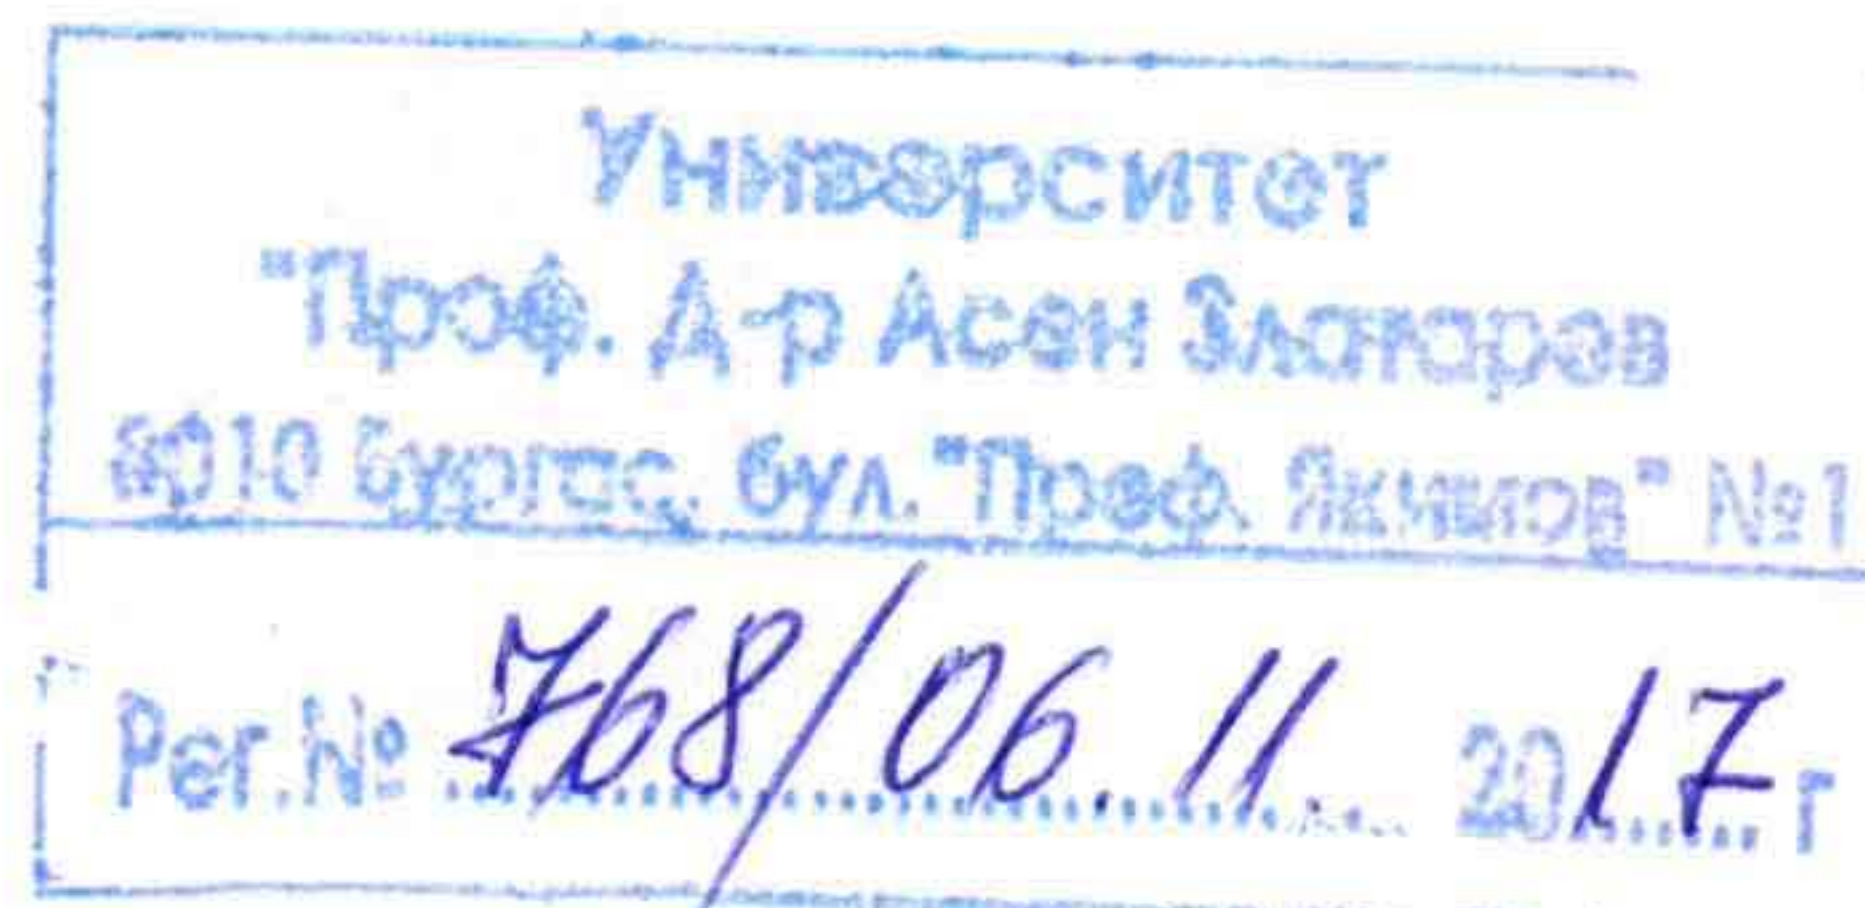 Университет
"Проф. Д-р Асен Златаров
8010 Бургас, бул. "Проф. Якимов" №1
Рег.№ 768/06.11. 2017 г